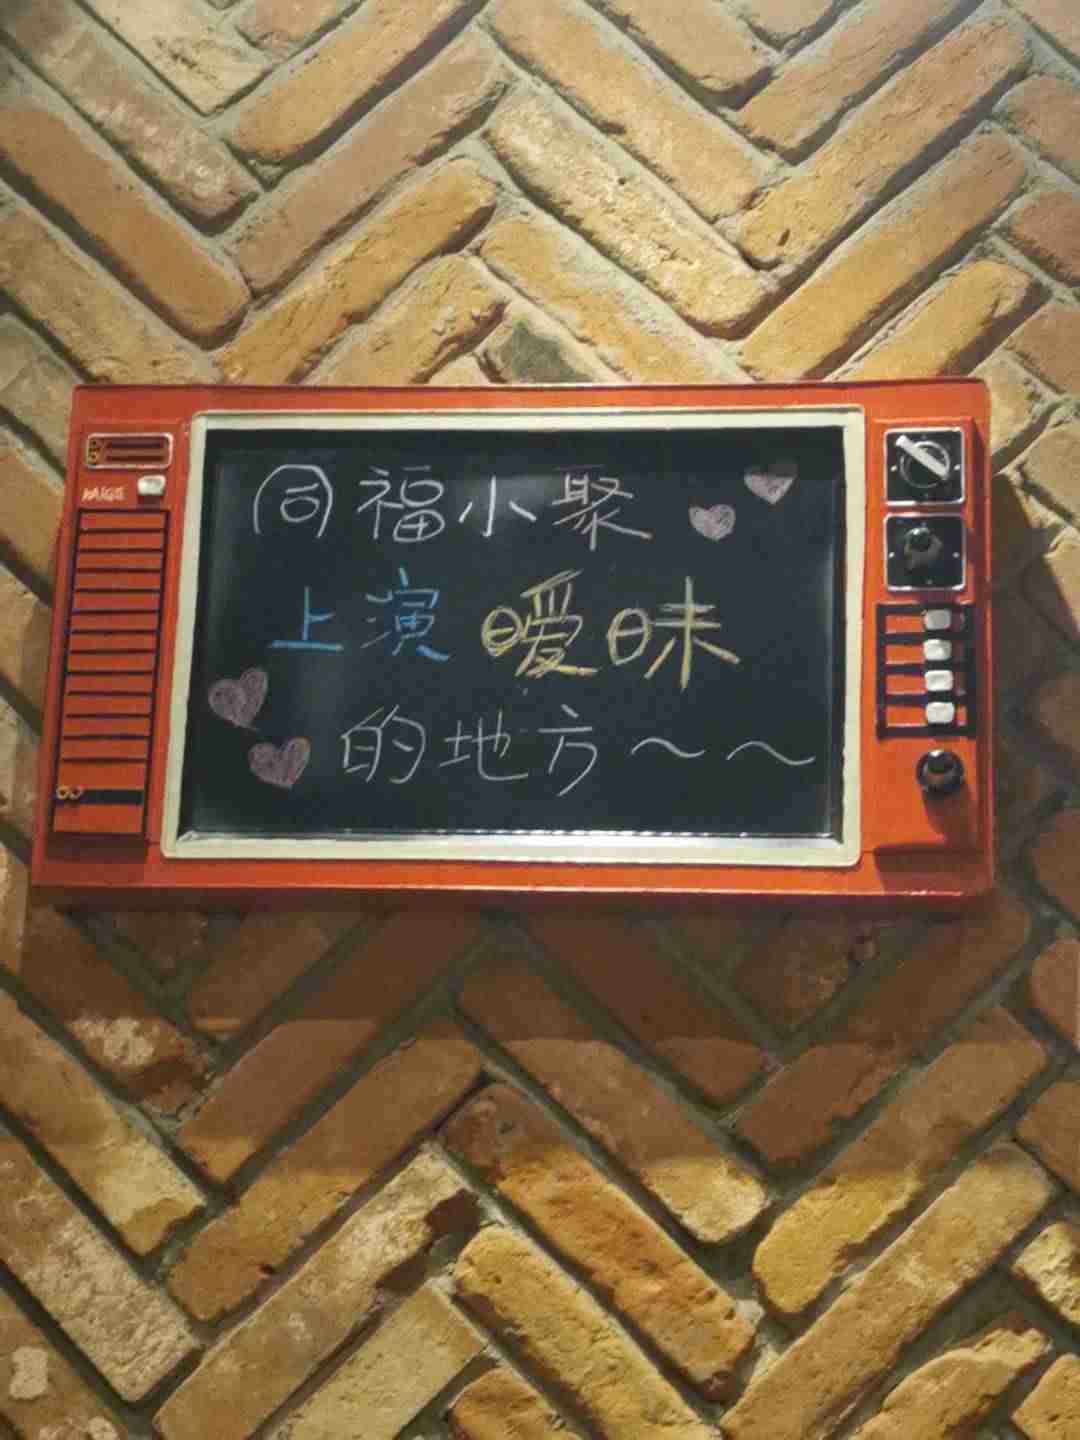 同福小聚
上演暧昧
的地方～～